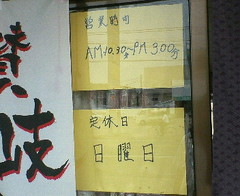 讃
岐
営業時間
AM10.30~PM3.00分
定休日
日曜日